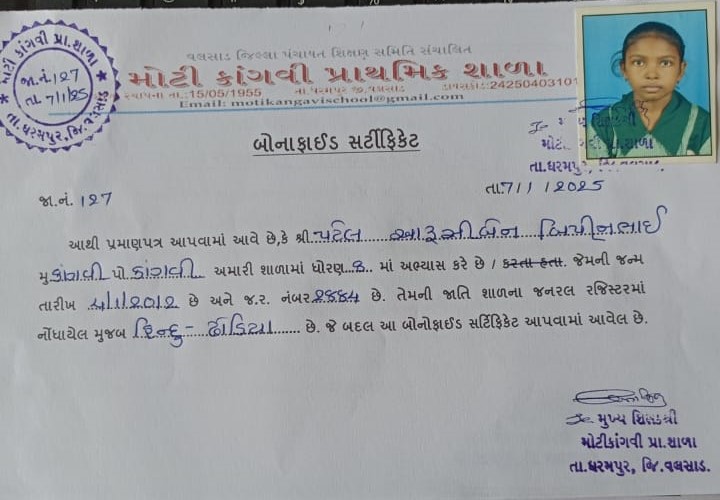 મોટી કાંગવી પ્રા.શાળા
જા.નં.127
તા. 7/1/25
તા. ધરમપુર, જિ. વલસાડ
વલસાડ જિલ્લા પંચાયત શિક્ષણ સમિતિ સંચાલિત
મોટી કાંગવી પ્રાથમિક શાળા
સ્થાપના તા.:15/05/1955 તા.ધરમપુર જી.વલસાડ ડાયસકોડ:24250403101
Email: motikangavischool@gmail.com
બોનાફાઈડ સર્ટીફિકેટ
તા.ધરમપુર,
જા.નં. 127
તા.7/1/2025
આથી પ્રમાણપત્ર આપવામાં આવે છે,કે શ્રી પટેલ આરૂસીબેન બિપીનભાઈ
મુ કાંગવી પો. કાંગવી અમારી શાળામાં ધોરણ 8 માં અભ્યાસ કરે છે / કરતા હતા. જેમની જન્મ
તારીખ છે અને જ.ર. નંબર ૨૪૪૧ છે. તેમની જાતિ શાળના જનરલ રજિસ્ટરમાં
નોંધાયેલ મુજબ હિન્દુ- ઢોડિયા છે. જે બદલ આ બોનોફાઈડ સર્ટિફિકેટ આપવામાં આવેલ છે.
મુખ્ય શિક્ષકશ્રી
મોટીકાંગવી પ્રા.શાળા
તા.ધરમપુર, જિ.વલસાડ.